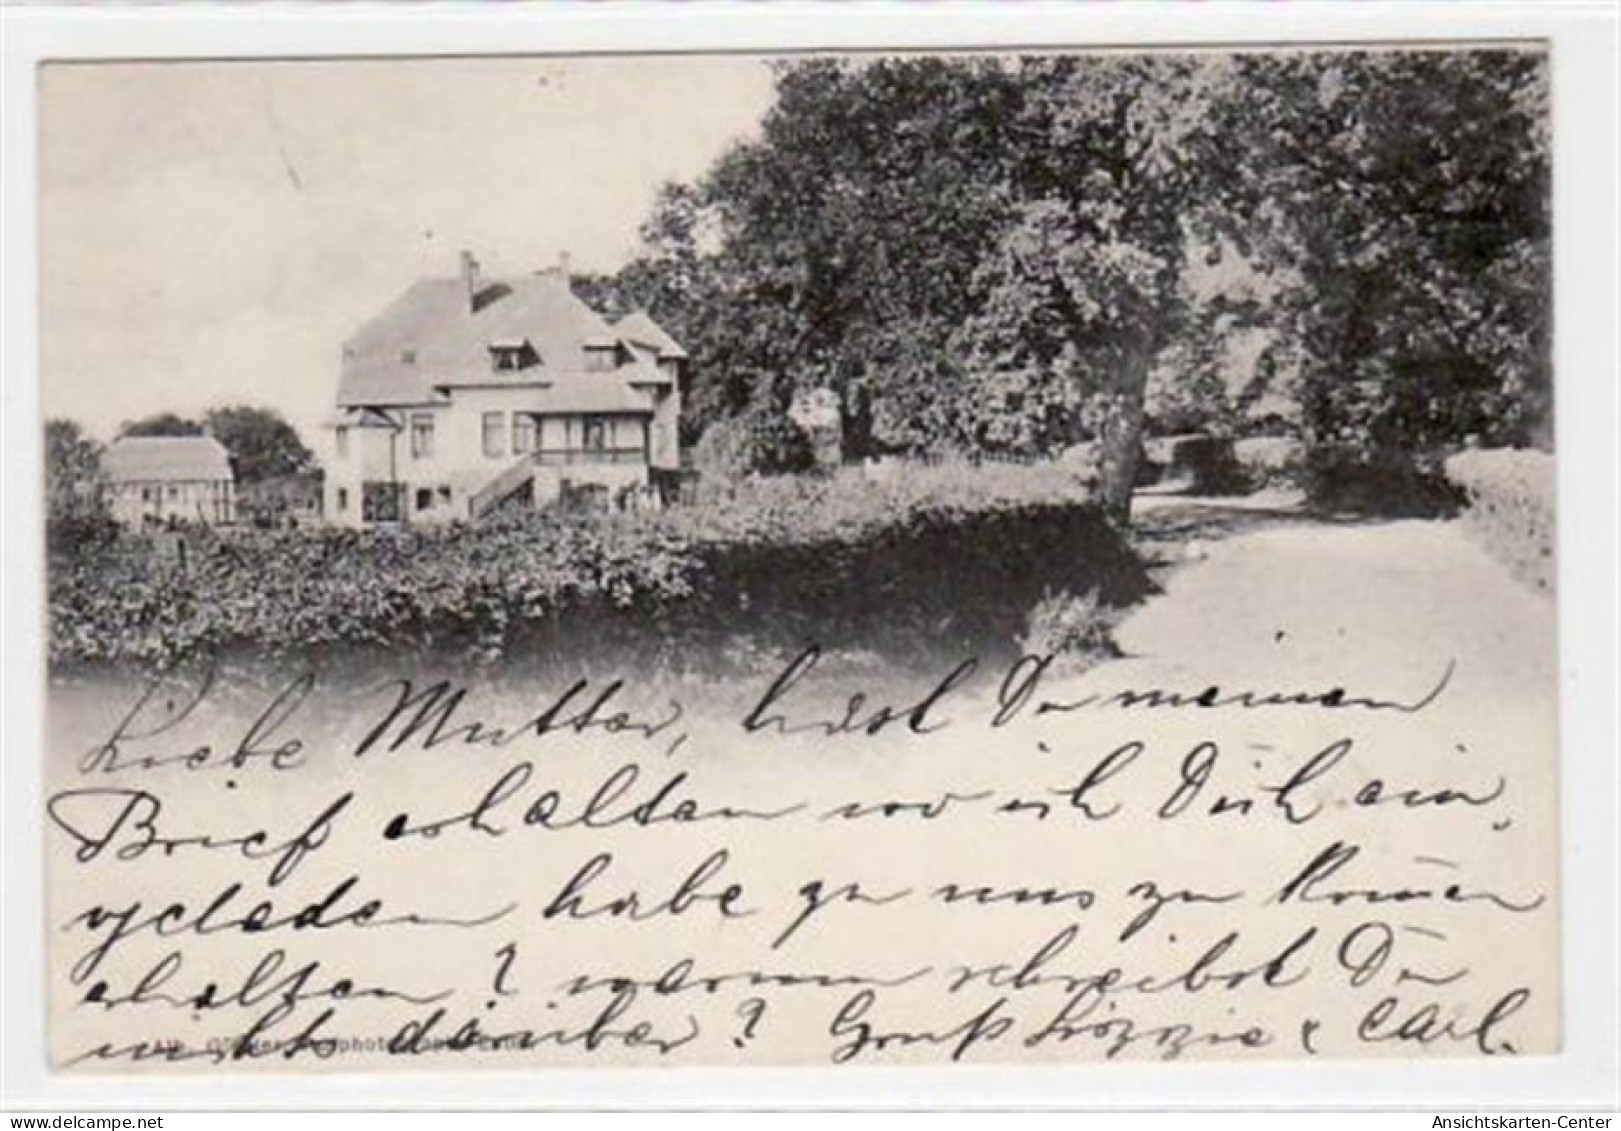 Liebe Mutter, hast Du meinen
Brief erhalten wo ich Dich ein
geladen habe zu uns zu kommen
erhalten? warum schreibst Du
nichts darüber? Gruß Lizzie & Carl.
the-collection.net
Ansichtskarten-Center